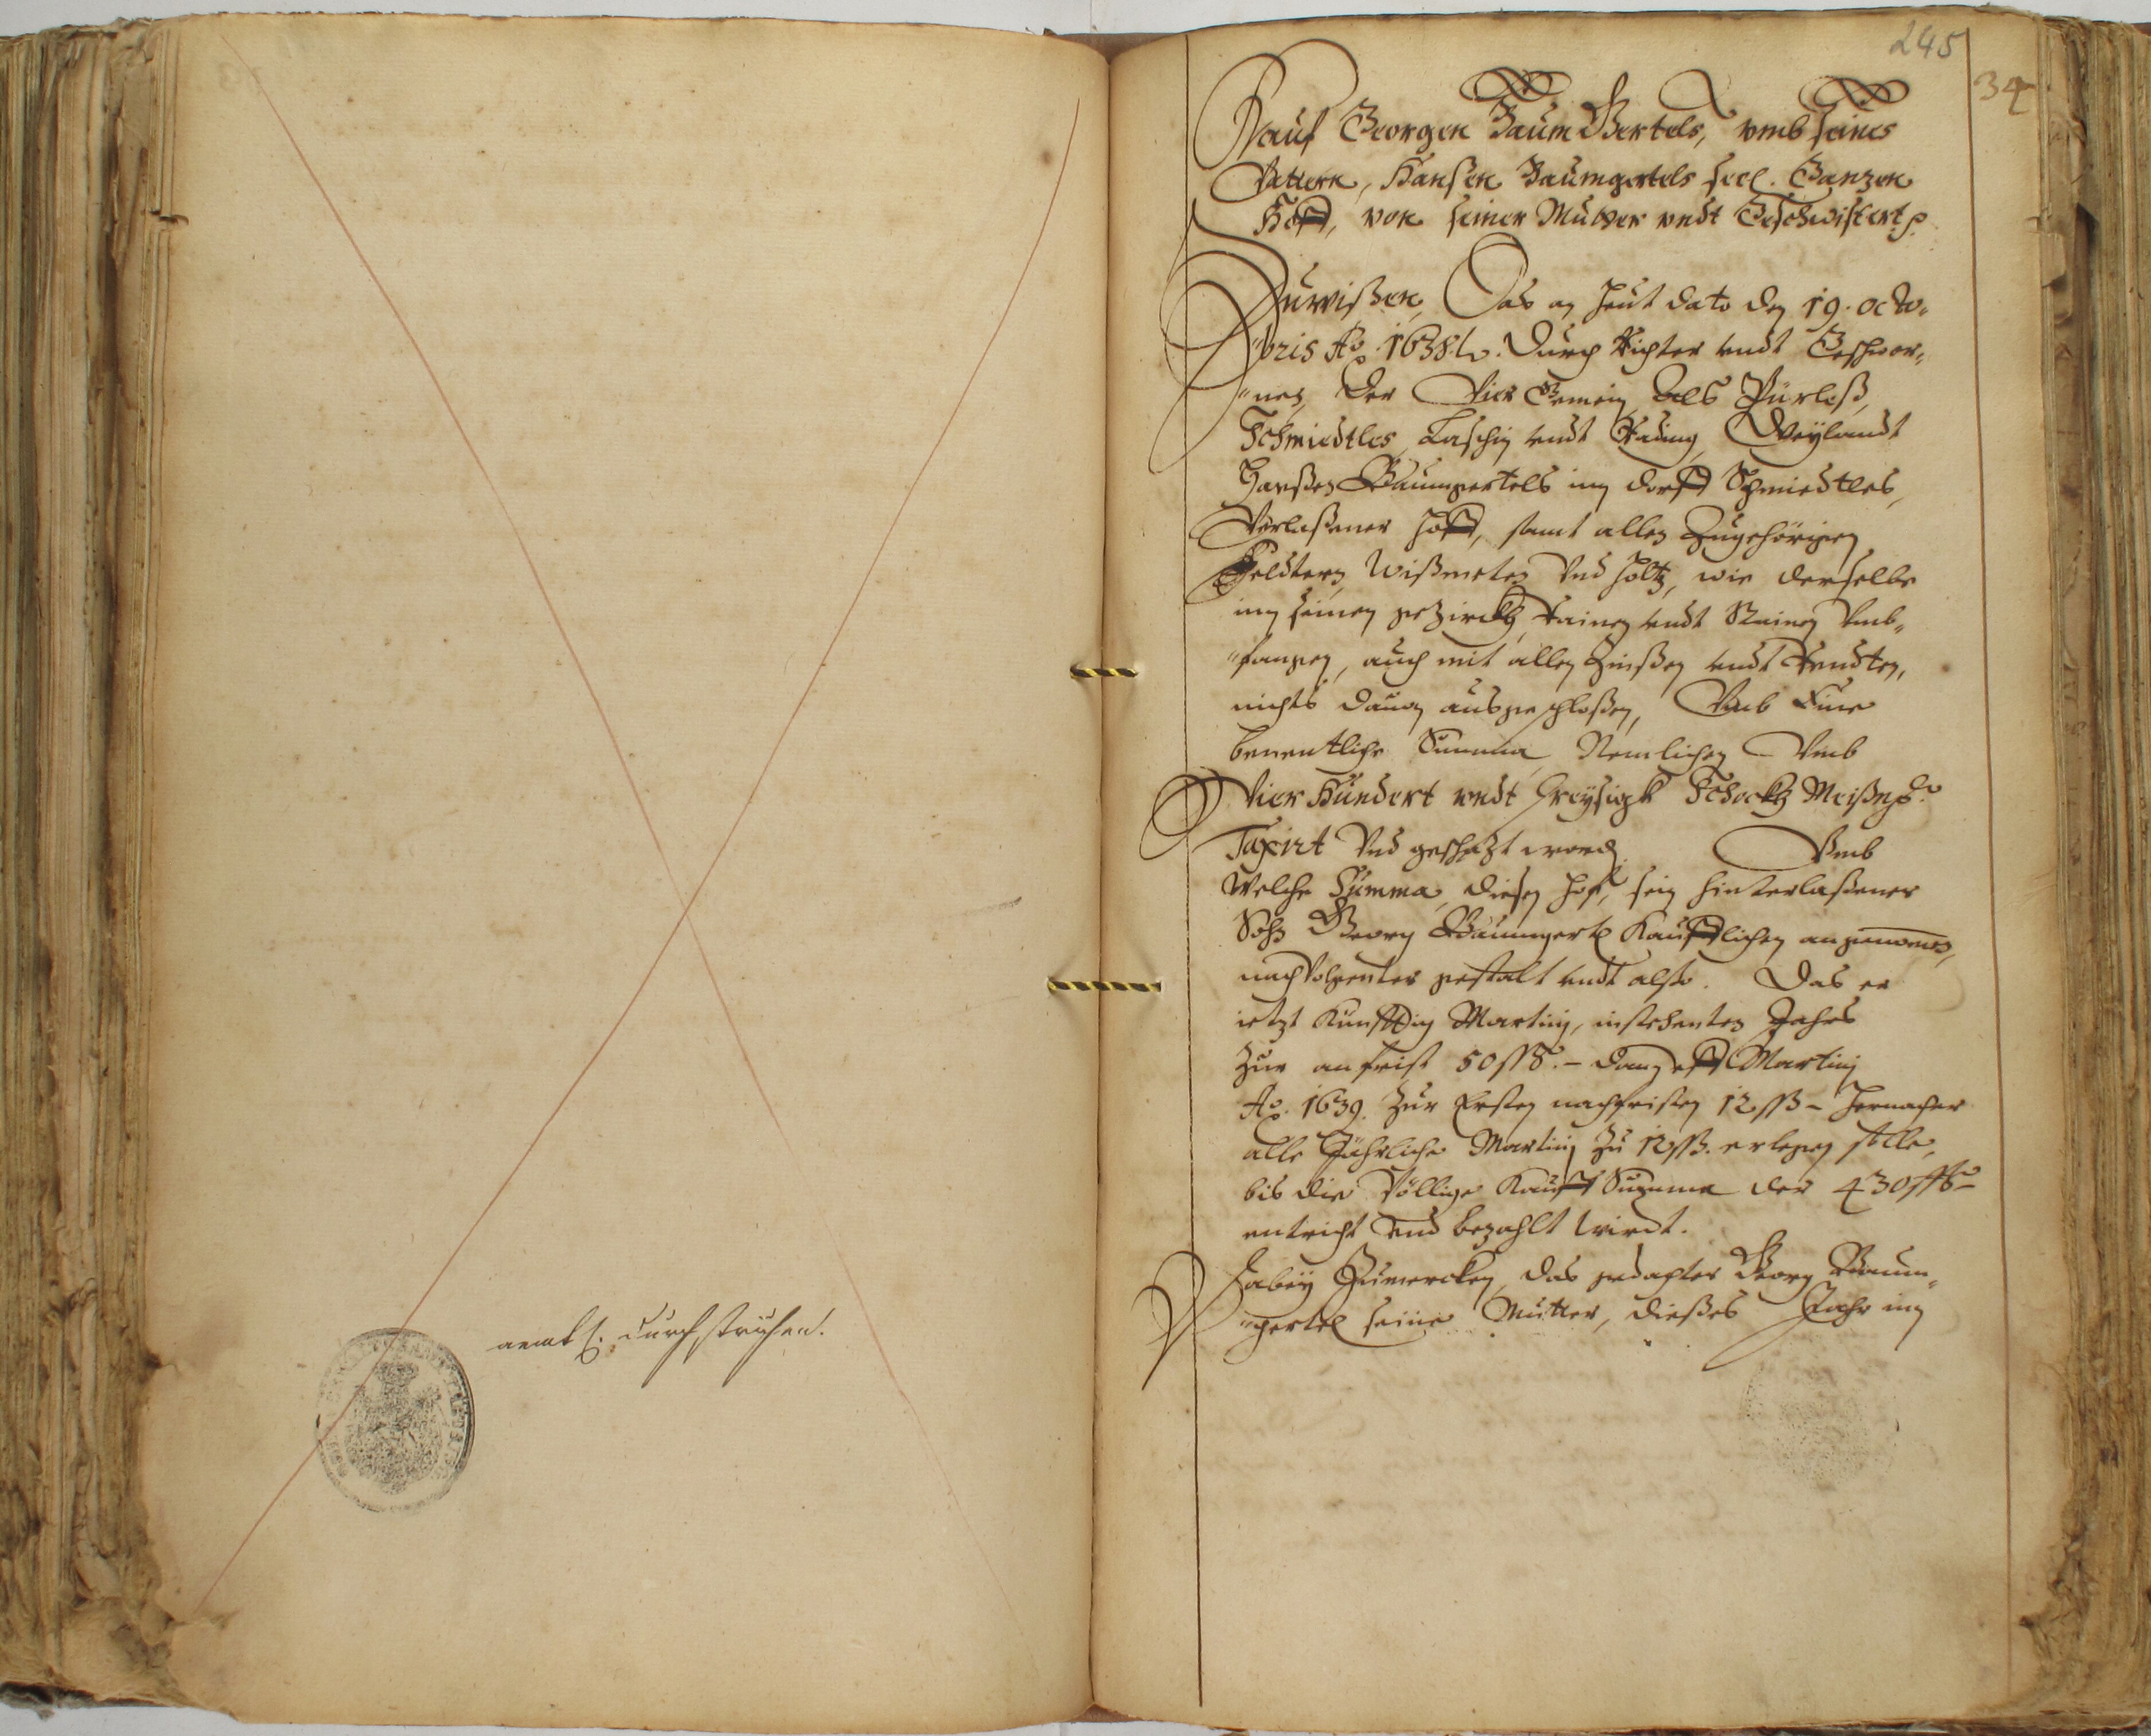 amtl. durchstrichen.
245
34
Kauf Georgen BaumGertels, vmb seines
Vattern, Hansen Baumgertels seel. Ganzen
Hoff, von seiner Mutter vndt Geschwistert.
Zuwißen, Das an heut dato den 19. octo-
bris Ao. 1638. Durch Richter vndt Geschwor-
nen, der Vier Gemein, als Pürleß,
Schmiedtles, Laschin vndt Rading, Weylandt
Hanßen Baumgertels im dorff Schmiedtles,
Verlaßener Hoff, samt allen Zugehörigen
Feldtern, Wißmeten Vnd holtz, wie derselbe
inn seinen gezirckh, Rainen vndt Steinen Vmb-
fangen, auch mit allen Zinßen vndt Rendten,
nichts dauon ausgeschloßen, Vmb Eine
benentliche Summa, Nemlichen Vmb
Vier Hundert vndt Dreysigk Schockh Meißnß.
Taxirt Vnd geschazt worden. Vmb
Welche Summa, diesen hof, sein hinterlaßener
Sohn Georg Baumgertl Kaufflichen angenomen,
nachVolgenter gestalt vndt also. Das er
ietzt Kunfftig Martinj, instehenten Jahrs
Zur anfrist 50 ßß. – dann auff Martinj
Ao. 1639. Zur Ersten nachfristen 12 ßß – hernacher
alle Jährliche Martinj Zu 12 ßß. erlegen solle,
bis die Völlige Kauff Summa der 430 ßß –
entricht vnd bezahlt wirdt.
Dabey Zumercken, das gedachter Georg Baum-
gertel seine Mutter, dießes Jahr inn